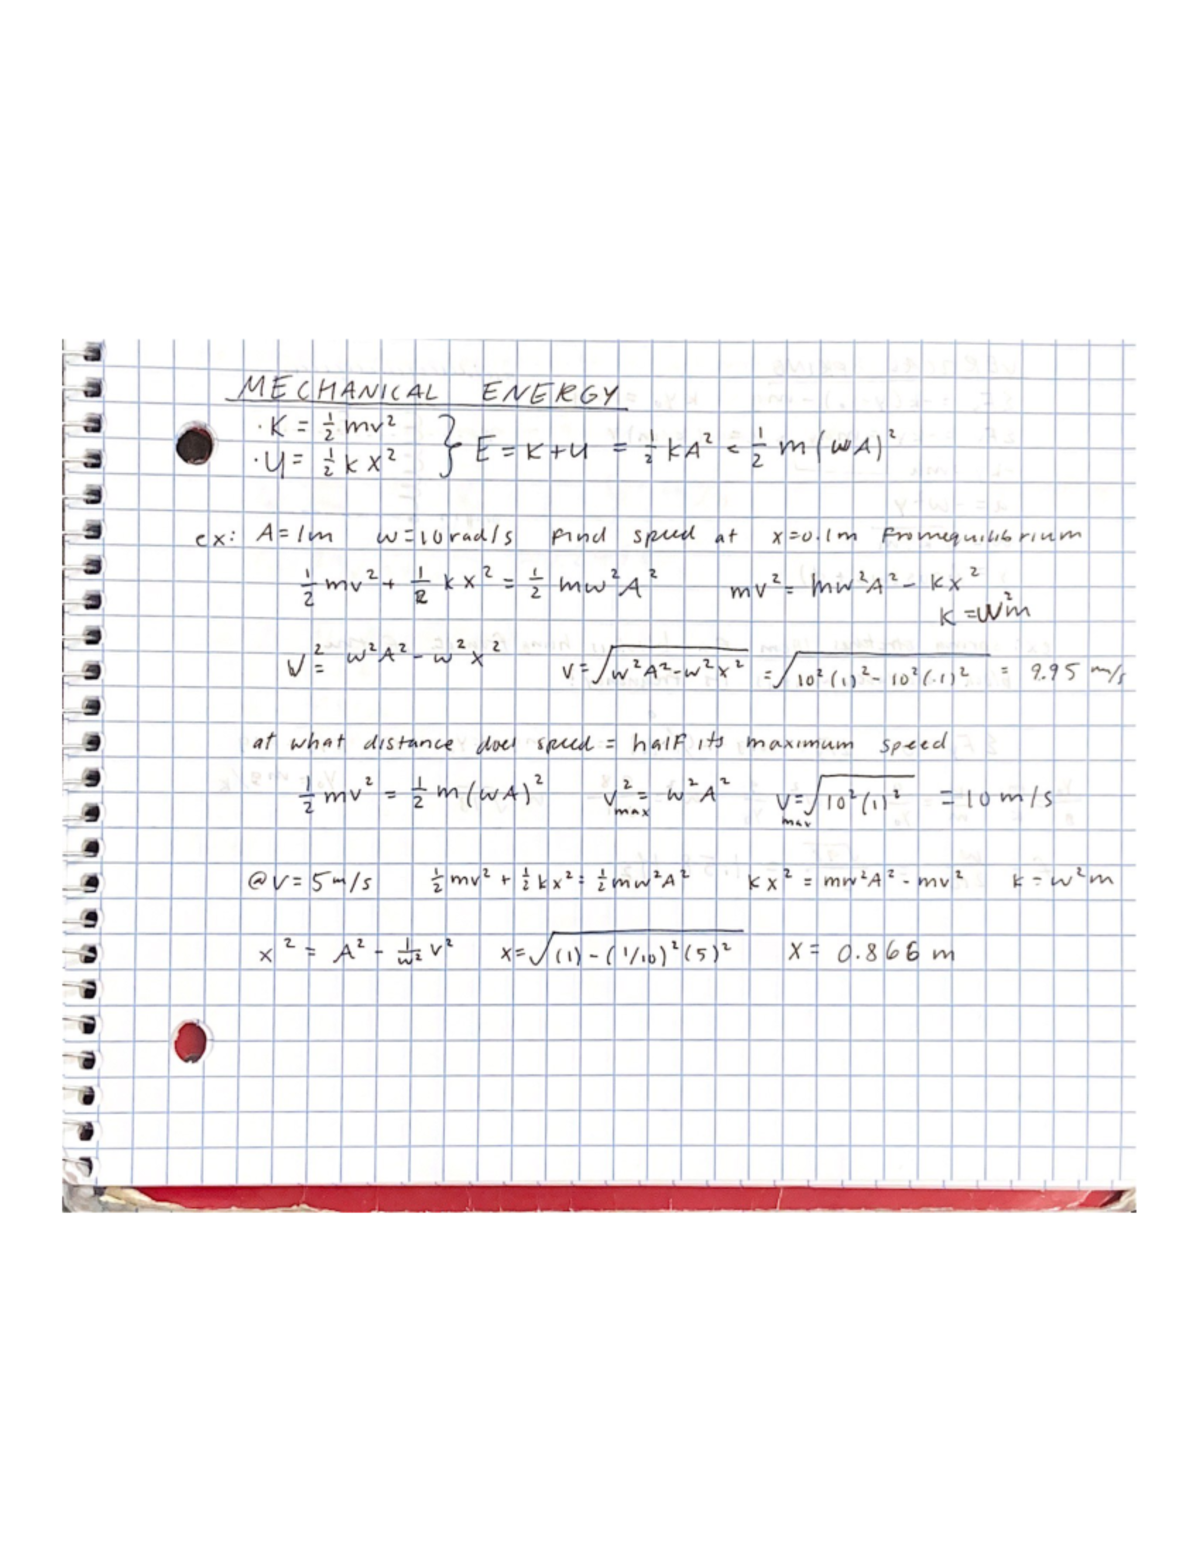 MECHANICAL ENERGY
· K = 1/2 mv²
· U = 1/2 k x² } E = K + U = 1/2 kA² = 1/2 m (wA)²
ex: A = 1m w = 10 rad/s Find speed at x = 0.1m From equilibrium
1/2 mv² + 1/2 k x² = 1/2 mw²A² mv² = mw²A² - kx²
K = w²m
v² = w²A² - w²x² v = √(w²A² - w²x²) = √(10²(1)² - 10²(.1)²) = 9.95 m/s
at what distance does speed = half its maximum speed
1/2 mv² = 1/2 m (wA)² v²max = w²A² vmax = √(10²(1)²) = 10 m/s
@ v = 5 m/s 1/2 mv² + 1/2 kx² = 1/2 mw²A² kx² = mw²A² - mv² k = w²m
x² = A² - 1/w² v² x = √((1) - (1/10)²(5)²) x = 0.866 m